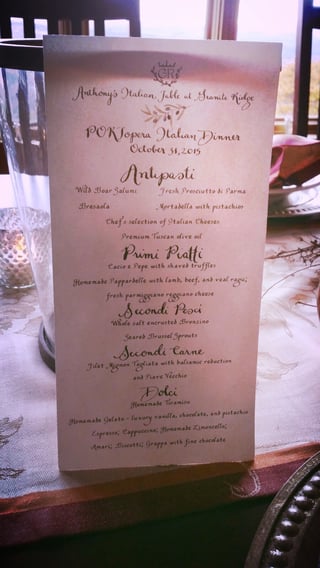 GR
Anthony's Italian Table at Granite Ridge
PORKopera Italian Dinner
October 31, 2015
Antipasti
Wild Boar Salumi Fresh Prosciutto di Parma
Bresaola Mortadella with pistachios
Chef's selection of Italian Cheeses
Premium Tuscan olive oil
Primi Piatti
Cacio e Pepe with shaved truffles
Homemade Pappardelle with lamb, beef, and veal ragu;
fresh parmiggiano reggiano cheese
Secondi Pesci
Whole salt encrusted Bronzino
Seared Brussel Sprouts
Secondi Carne
Filet Mignon Tagliata with balsamic reduction
and Fiore Vecchio
Dolci
Homemade Tiramisu
Homemade Gelato - luxury vanilla, chocolate, and pistachio
Espresso; Cappuccino; Homemade Limoncello;
Amari; Biscotti; Grappa with fine chocolate